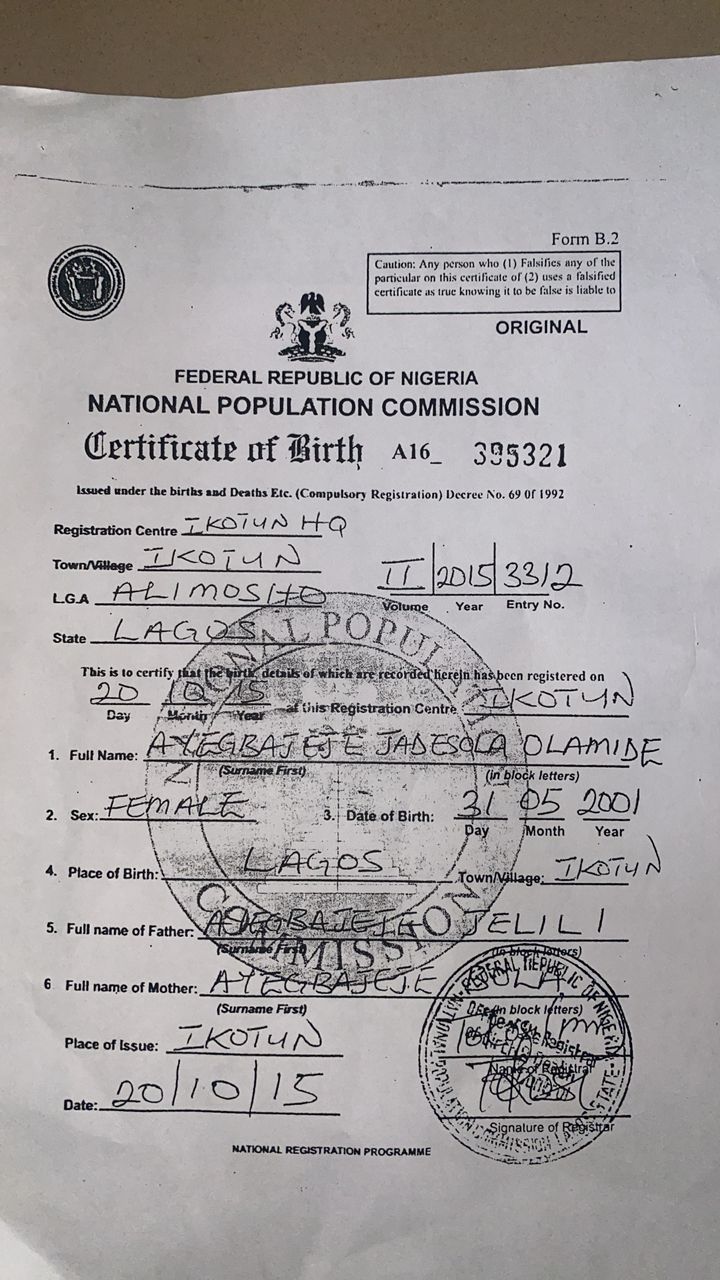 Form B.2
Caution: Any person who (1) Falsifies any of the
particular on this certificate of (2) uses a falsified
certificate as true knowing it to be false is liable to
ORIGINAL
FEDERAL REPUBLIC OF NIGERIA
NATIONAL POPULATION COMMISSION
Certificate of Birth A16_ 395321
Issued under the births and Deaths Etc. (Compulsory Registration) Decree No. 69 Of 1992
Registration Centre IKOTUN HQ
Town/Village IKOTUN
L.G.A ALIMOSHO
II 2015 3312
Volume Year Entry No.
State LAGOS
This is to certify that the birth, details of which are recorded herein has been registered on
20 10 15 at this Registration Centre IKOTUN
Day Month Year
1. Full Name: AYEGBAJEJE JADESOLA OLAMIDE
(Surname First) (in block letters)
2. Sex: FEMALE 3. Date of Birth: 31 05 2001
Day Month Year
4. Place of Birth: LAGOS Town/Village: IKOTUN
5. Full name of Father: AYEGBAJEJE JELILI
(Surname First) (in block letters)
6 Full name of Mother: AYEGBAJEJE
(Surname First) (in block letters)
Place of Issue: IKOTUN
Name of Registrar
Date: 20/10/15
Signature of Registrar
NATIONAL REGISTRATION PROGRAMME
NATIONAL POPULATION COMMISSION
FEDERAL REPUBLIC OF NIGERIA